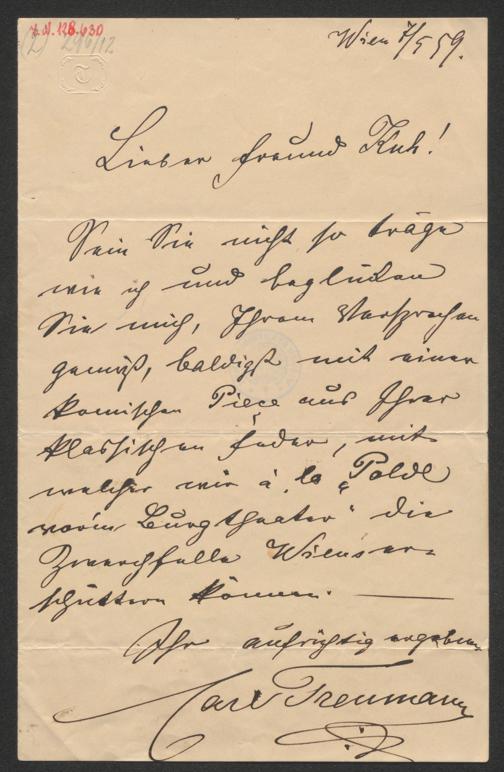 I.N. 128.630
(2) 296/12
T
Wien 7/5 59.
Lieber Freund Kuh!
Sein Sie nicht so träge
wie ich und beglücken
Sie mich, Ihrem Versprechen
gemäß, baldigst mit einer
komischen Piece aus Ihrer
klassischen Feder, mit
welcher wir à la „Poldl
vor'm Burgtheater" die
Zwerchfelle Wiens er=
schüttern können. —
Ihr aufrichtig ergebener
Carl Treumann